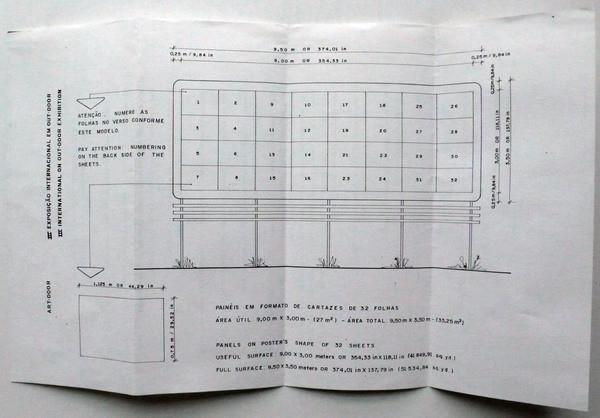 9,50 m OR 374,01 in
0,25 m / 9,84 in
9,00 m OR 354,33 in
0,25 m / 9,84 in
III EXPOSIÇÃO INTERNACIONAL EM OUT-DOOR
III INTERNATIONAL ON OUT-DOOR EXHIBITION
ATENÇÃO: NUMERE AS
FOLHAS NO VERSO CONFORME
ESTE MODELO.
PAY ATTENTION: NUMBERING
ON THE BACK SIDE OF THE
SHEETS.
1 2 9 10 17 18 25 26
3 4 11 12 19 20 27 28
5 6 13 14 21 22 29 30
7 8 15 16 23 24 31 32
0,25m/9,84in
3,00 m OR 118,11 in
3,50 m OR 137,79 in
0,25m/9,84in
ART-DOOR
1,125 m OR 44,29 in
0,75 m / 29,52 in
PAINÉIS EM FORMATO DE CARTAZES DE 32 FOLHAS
ÁREA ÚTIL: 9,00 m X 3,00 m - (27 m²) - ÁREA TOTAL: 9,50 m X 3,50 m - (33,25 m²)
PANELS ON POSTER'S SHAPE OF 32 SHEETS
USEFUL SURFACE: 9,00 X 3,00 meters OR 354,33 in X 118,11 in (41 849,91 sq. yd.)
FULL SURFACE: 9,50 X 3,50 meters OR 374,01 in X 137,79 in (51 534,84 sq. yd.)